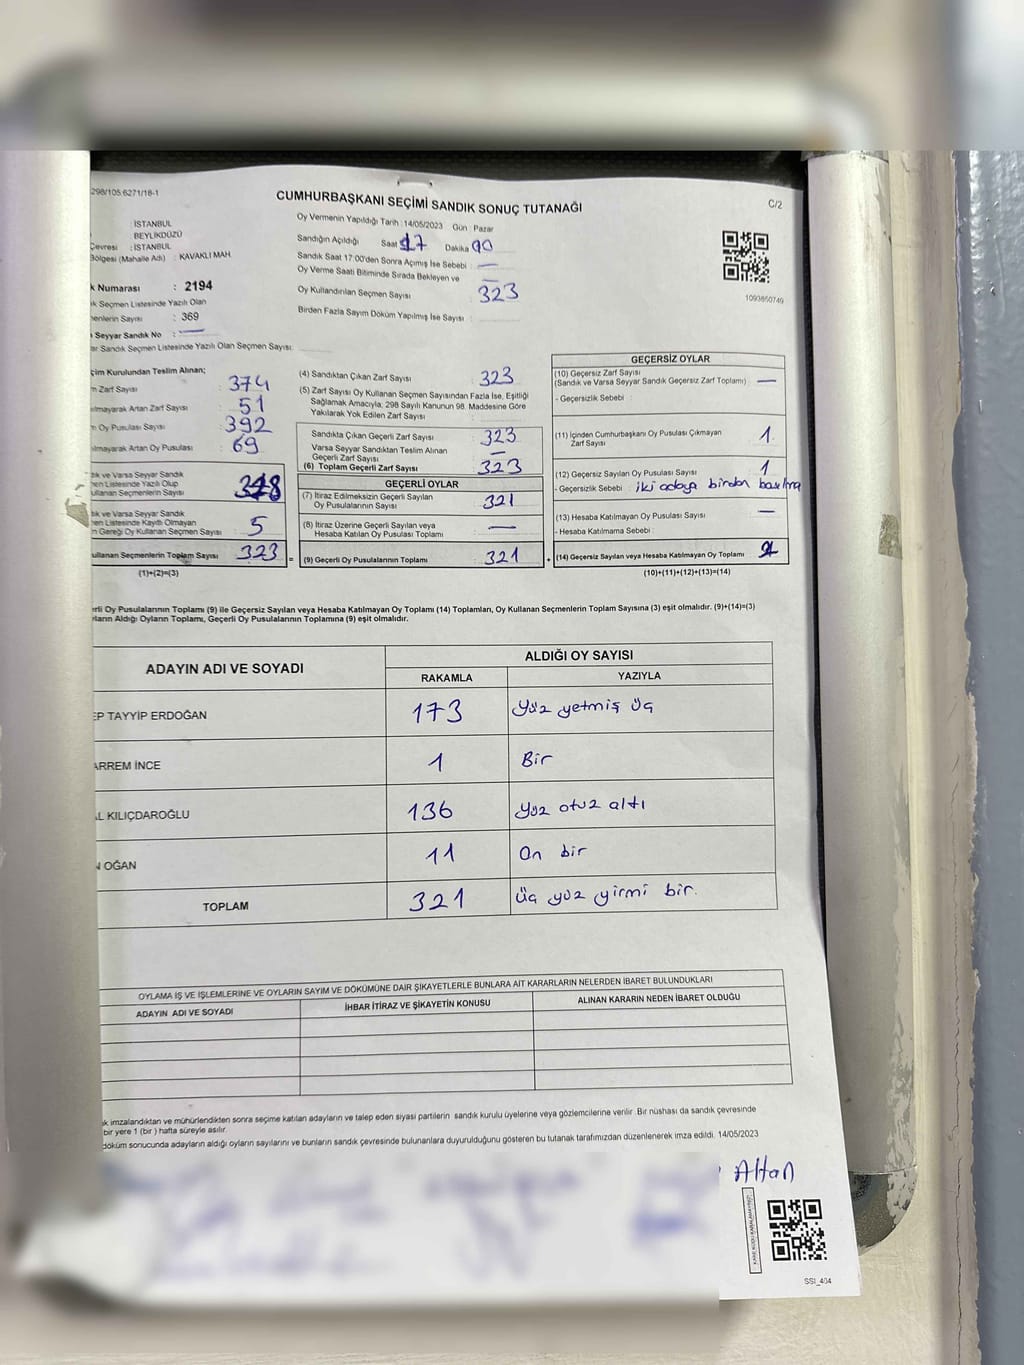 298/105.6271/18-1
CUMHURBAŞKANI SEÇİMİ SANDIK SONUÇ TUTANAĞI
C/2
İSTANBUL
BEYLİKDÜZÜ
Çevresi : İSTANBUL
Bölgesi (Mahalle Adı) : KAVAKLI MAH.
k Numarası : 2194
ık Seçmen Listesinde Yazılı Olan
menlerin Sayısı : 369
Seyyar Sandık No : —
ar Sandık Seçmen Listesinde Yazılı Olan Seçmen Sayısı:
Oy Vermenin Yapıldığı Tarih : 14/05/2023 Gün : Pazar
Sandığın Açıldığı Saat 17 Dakika 00
Sandık Saat 17:00'den Sonra Açımış İse Sebebi : —
Oy Verme Saati Bitiminde Sırada Bekleyen ve —
Oy Kullandırılan Seçmen Sayısı 323
Birden Fazla Sayım Döküm Yapılmış İse Sayısı :
1093850749
çim Kurulundan Teslim Alınan;
m Zarf Sayısı : 374
ılmayarak Artan Zarf Sayısı : 51
m Oy Pusulası Sayısı : 392
ılmayarak Artan Oy Pusulası : 69
ık ve Varsa Seyyar Sandık
en Listesinde Yazılı Olup
ullanan Seçmenlerin Sayısı 318
ık ve Varsa Seyyar Sandık
en Listesinde Kayıtlı Olmayan
n Gereği Oy Kullanan Seçmen Sayısı 5
ullanan Seçmenlerin Toplam Sayısı 323 =
(1)+(2)=(3)
(4) Sandıktan Çıkan Zarf Sayısı : 323
(5) Zarf Sayısı Oy Kullanan Seçmen Sayısından Fazla İse, Eşitliği
Sağlamak Amacıyla; 298 Sayılı Kanunun 98. Maddesine Göre
Yakılarak Yok Edilen Zarf Sayısı :
Sandıkta Çıkan Geçerli Zarf Sayısı : 323
Varsa Seyyar Sandıktan Teslim Alınan —
Geçerli Zarf Sayısı
(6) Toplam Geçerli Zarf Sayısı : 323
GEÇERLİ OYLAR
(7) İtiraz Edilmeksizin Geçerli Sayılan
Oy Pusulalarının Sayısı : 321
(8) İtiraz Üzerine Geçerli Sayılan veya
Hesaba Katılan Oy Pusulası Toplamı : —
(9) Geçerli Oy Pusulalarının Toplamı : 321 +
GEÇERSİZ OYLAR
(10) Geçersiz Zarf Sayısı
(Sandık ve Varsa Seyyar Sandık Geçersiz Zarf Toplamı) : —
- Geçersizlik Sebebi :
(11) İçinden Cumhurbaşkanı Oy Pusulası Çıkmayan
Zarf Sayısı : 1
(12) Geçersiz Sayılan Oy Pusulası Sayısı : 1
- Geçersizlik Sebebi : iki adaya birden basılma
(13) Hesaba Katılmayan Oy Pusulası Sayısı : —
- Hesaba Katılmama Sebebi :
(14) Geçersiz Sayılan veya Hesaba Katılmayan Oy Toplamı : 2
(10)+(11)+(12)+(13)=(14)
erli Oy Pusulalarının Toplamı (9) ile Geçersiz Sayılan veya Hesaba Katılmayan Oy Toplamı (14) Toplamları, Oy Kullanan Seçmenlerin Toplam Sayısına (3) eşit olmalıdır. (9)+(14)=(3)
ların Aldığı Oyların Toplamı, Geçerli Oy Pusulalarının Toplamına (9) eşit olmalıdır.
ADAYIN ADI VE SOYADI
ALDIĞI OY SAYISI
RAKAMLA YAZIYLA
EP TAYYİP ERDOĞAN 173 Yüz yetmiş üç
ARREM İNCE 1 Bir
AL KILIÇDAROĞLU 136 Yüz otuz altı
N OĞAN 11 On bir
TOPLAM 321 Üç yüz yirmi bir.
OYLAMA İŞ VE İŞLEMLERİNE VE OYLARIN SAYIM VE DÖKÜMÜNE DAİR ŞİKAYETLERLE BUNLARA AİT KARARLARIN NELERDEN İBARET BULUNDUKLARI
ADAYIN ADI VE SOYADI İHBAR İTİRAZ VE ŞİKAYETİN KONUSU ALINAN KARARIN NEDEN İBARET OLDUĞU
ak imzalandıktan ve mühürlendikten sonra seçime katılan adayların ve talep eden siyasi partilerin sandık kurulu üyelerine veya gözlemcilerine verilir. Bir nüshası da sandık çevresinde
bir yere 1 (bir ) hafta süreyle asılır.
döküm sonucunda adayların aldığı oyların sayılarını ve bunların sandık çevresinde bulunanlara duyurulduğunu gösteren bu tutanak tarafımızdan düzenlenerek imza edildi. 14/05/2023
Altan
SSI_404